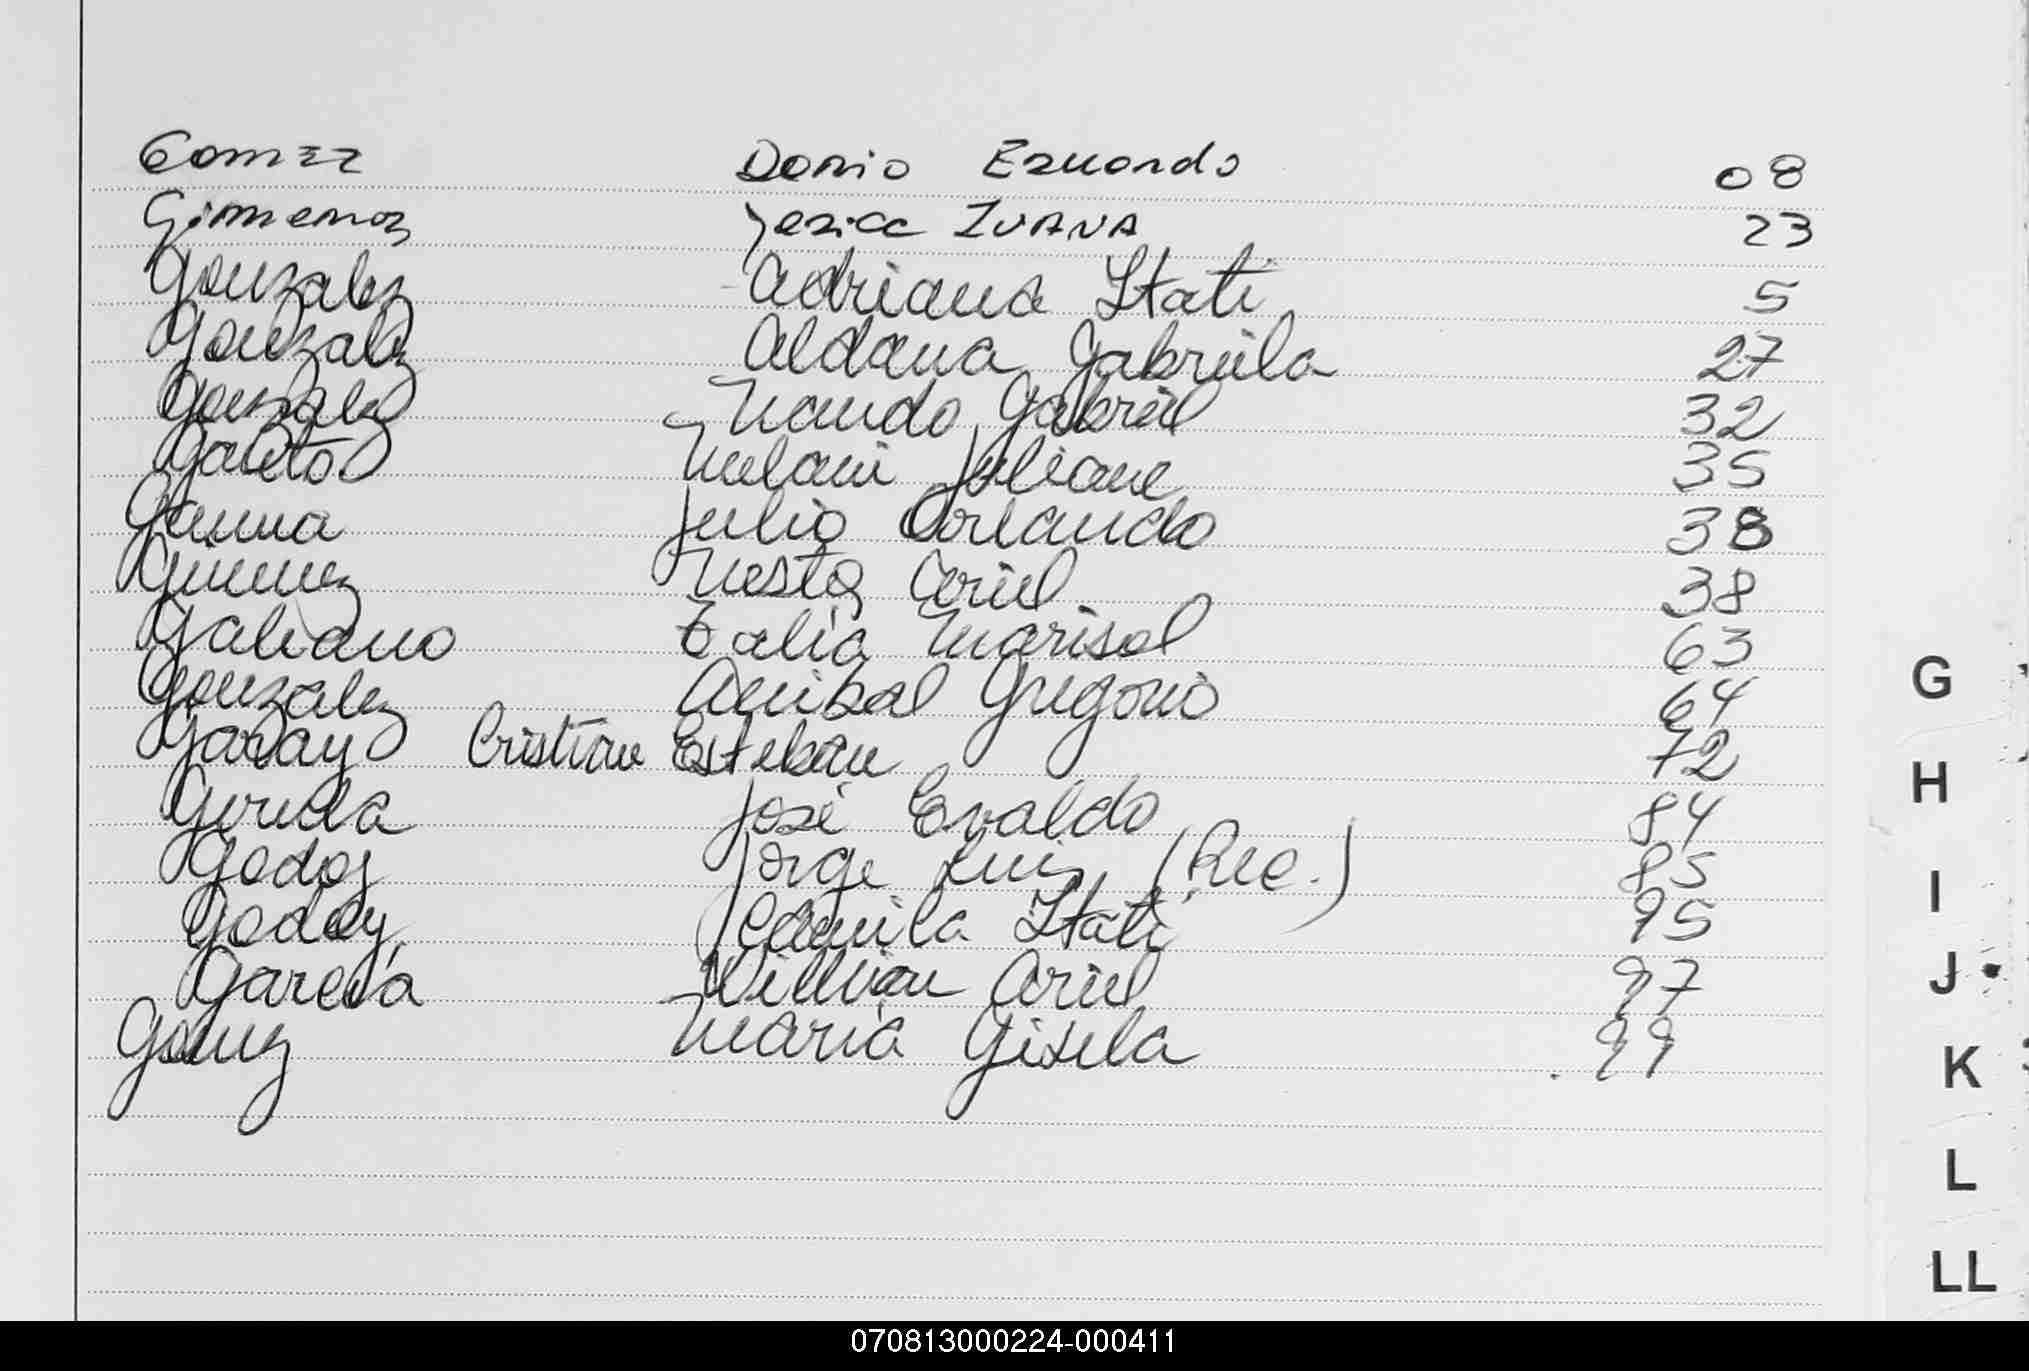 Gomez Dario Eduardo 08
Gimenez Jesica IVANA 23
Gonzalez Adriana Itati 5
Gonzalez Aldana Gabriela 27
Gonzalez Nando Gabriel 32
Galeto Melani Juliane 35
Gauna Julio Orlando 38
Gimenez Nestor Ariel 38
Galeano Talia Marisol 63
Gonzalez Anibal Gregorio 64
Garay Cristian Esteban 72
José Evaldo 84
Godoy Jorge Luis (Rec.) 85
Godoy, Camila Itati 95
García William Ariel 97
Gomez Maria Gisela 99
G
H
I
J
K
L
LL
070813000224-000411